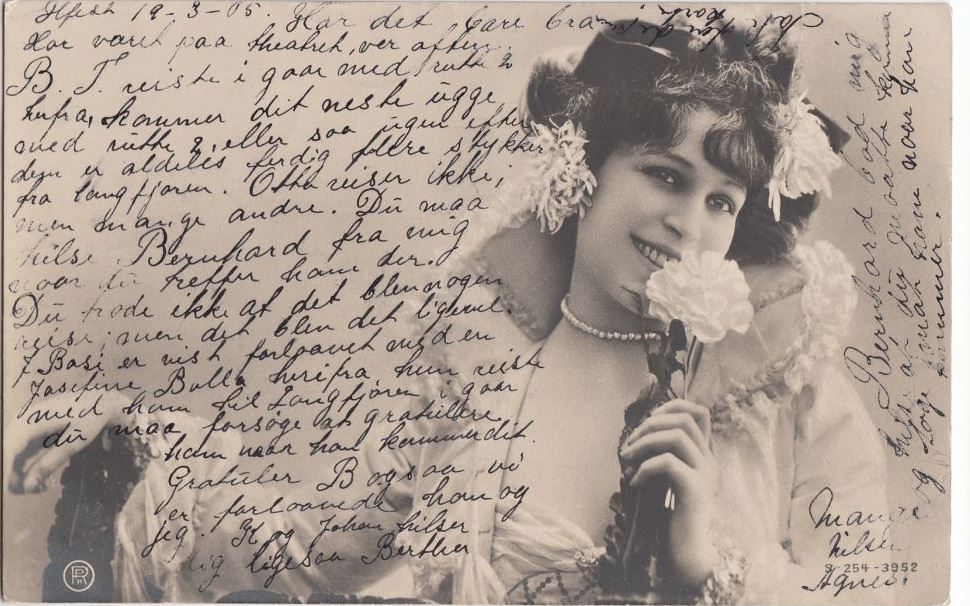 19-3-05. Har det bare bra
Har varet paa theatret, ver aften.
B. T. reiste i gaar med rutte 2
herfra, kommer dit neste ugge
med rutte 2, eller saa ugen efter
dem er aldeles ferdig flere stykker
fra langfjoren. Otto reiser ikke,
men mange andre. Du maa
hilse Bernhard fra mig
naar du treffer ham der.
Du trode ikke at det blev nogen
reise, men det blev det ligevel.
J Basi er vist forloavet med en
Josefine Balla herifra hun reiste
med ham til Langfjoren i gaar
du maa forsøge at gratulere
ham naar han kommer dit.
Gratuler B ogsaa vi
er forloavede han og
jeg. H og Johan hilser
dig ligesaa Berthea
Bernhard bod mig
hilse at du maatte
og
naar han
kommer.
Mange
hilsen
Agnes.
S-254-3952
RPH